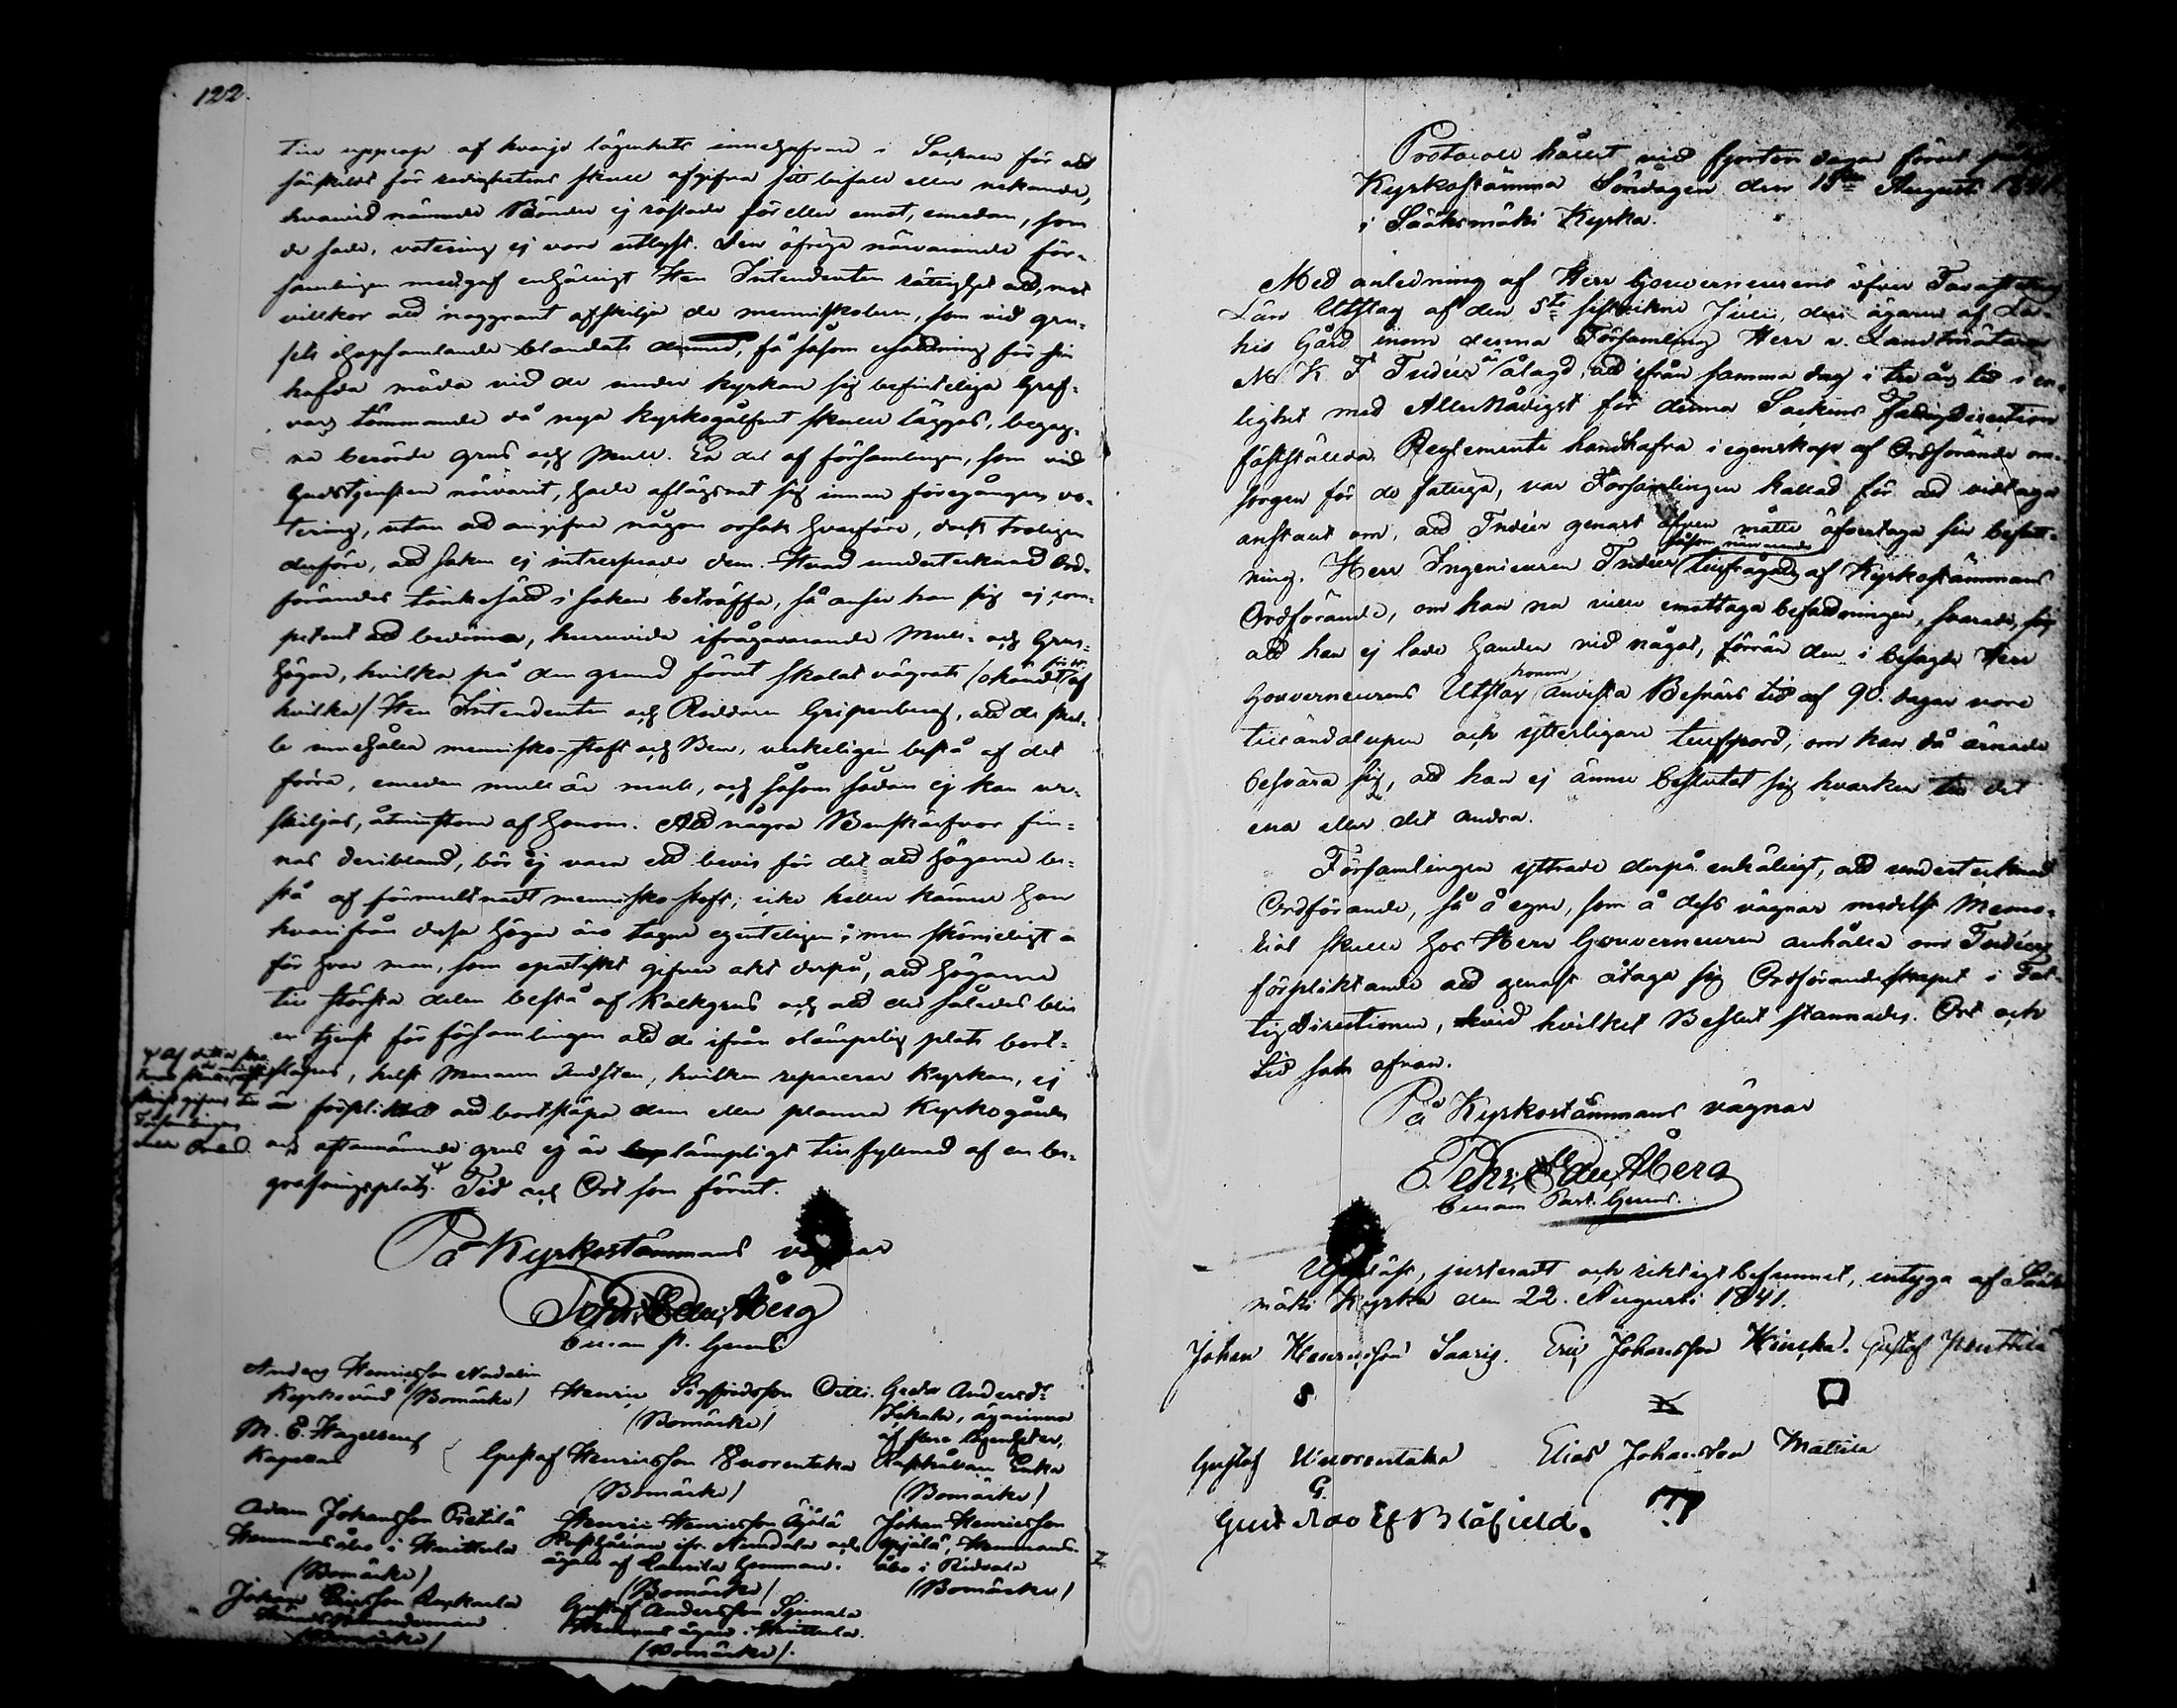 122.
till upprop af hvarje lägenhets innehafvare i Socknen för att
särskildt för redighetens skull afgifva sitt bifall eller nekande,
hvarvid nämnde Bönder ej röstade för eller emot, emedan, som
de sade, votering ej vore utlyst. Den öfriga närvarande för-
samlingen medgaf enhälligt Herr Intendenten rättighet att, mot
villkor att noggrant afskilja de menniskoben, som vid gru-
sets ihopsamlande blandats dermed, få såsom ersättning för sin
hafda möda vid de under kyrkan sig befinteliga Graf-
vars tömmande då nya kyrkogålfvet skulle läggas, begag-
na berörde grus och mull. En del af församlingen, som vid
Gudstjensten närvarit, hade aflägsnat sig innan föregången vo-
tering, utan att angifva någon orsak hvarföre, dock troligen
derföre, att saken ej intresserade dem. Hvad undertecknad Ord-
förandes tänkesätt i saken beträffa, så anser han sig ej com-
petent att bedöma, huruvida ifrågavarande Mull- och Grus-
högar, hvilka på den grund förut skolat vägrats /okändt för or. af
hvilka/ Herr Intendenten och Riddaren Gripenberg, att de skul-
le innehålla mennisko-stoft och Ben, verkeligen bestå af det
förra, emedan mull är mull, och såsom sådan ej kan ur-
skiljas, åtminstone af honom. Att några Benskärfvor fin-
nas deribland, bör ej vara ett bevis för det att högarne be-
stå af förmultnadt mennisko-stoft; icke heller känner han
hvarifrån dessa högar äro tagne egenteligen; men skönjeligt ä
för hvar man, som opartiskt gifver akt derpå, att högarne
till största delen bestå af Kalkgrus och att det således blir
en tjenst för församlingen att de ifrån olämpelig plats bort-
slapas, helst Muraren Lindsten, hvilken reparerar Kyrkan, ej
är förpliktad att bortsläpa dem eller planera Kyrkogården
och oftanämnde grus ej är lämpligt till fyllnad af en be-
grafningsplats. Tid och Ort som förut.
På Kyrkostämmans vägnar
Pehr Edu. Åberg
Curam P. Gerens.
Anders Henricsson Nadalin
Kyrkovärd (Bomärke)
M. E. Hagelberg
Kapellan
Adam Johansson Pietilä
Hemmansåbo i Huittula
(Bomärke)
Johan Ericsson Rapkaela
(Bomärke)
Henric Sigfridsson Ocilli.
(Bomärke)
Gustaf Henricsson Vuorentaka
(Bomärke)
Henric Henricsson Äijälä
ägare af Laurila hemman.
(Bomärke)
Gustaf Andersson Sipinala
Hemmansägare i Huittula.
(Bomärke).
Greta Andersdr
ägarinna
af flere lägenheter,
(Bomärke)
Johan Henricsson
Hemmans-
åbo i Ridvala
(Bomärke)
Protocoll hållet vid fjorton dagar förut
Kyrkostämma Söndagen den 15de Augusti 1841
i Sääksmäki Kyrka.
Med anledning af Herr Gouverneurens öfver Tavastehus
Län Utslag af den 5te sistvikne Julii, deri ägaren af La-
his Gård inom denna Församling Herr v. Landtmätaren
M. K. F. Indrén är ålagd, att ifrån samma dag i tre års tid i en-
lighet med Allernådigst för denna Sockens Fattigdirection
fastställda Reglemente handhafva i egenskap af Ordförande om-
sorgen för de fattiga, var Församlingen kallad för att vidtaga
anstalt om, att Indrén genast måtte öfvertaga sin befatt-
ning. Herr Ingenieuren Indrén såsom närvarande tillfrågad af Kyrkostämmans
Ordförande, om han nu ville emottaga befattningen, svarade sig
att han ej lade handen vid något, förrän den i besagde Herr
Gouverneurens Utslag honom anvista Besvärs tid af 90. dagar vore
tilländalupen och ytterligare tillspord, om han då ärnade
besvära sig, att han ej ännu beslutat sig hvarken till det
ena eller det andra.
Församlingen yttrade derpå enhäligt, att undertecknad
Ordförande, så å egne, som å dess vägnar medelst Memo-
rial skulle hos Herr Gouverneuren anhålla om Indréns
förpliktande att genast åtaga sig Ordförandeskapet i Fat-
tigdirectionen, hvid hvilket Beslut stannades. Ort och
tid som ofvan.
På Kyrkostämmans vägnar
Pehr Edu. Åberg
Curam Past. Gerens.
Uppläst, justeradt och riktigt befunnet, intyga af Sääks-
mäki Kyrka den 22. Augusti 1841.
Johan Henricsson Saaris. Eric Johansson Hinçka. Gustaf Penttilä
Gustaf Vuorentaka Elias Johansson Mattila
G.
Gust Adolf Blåfield.